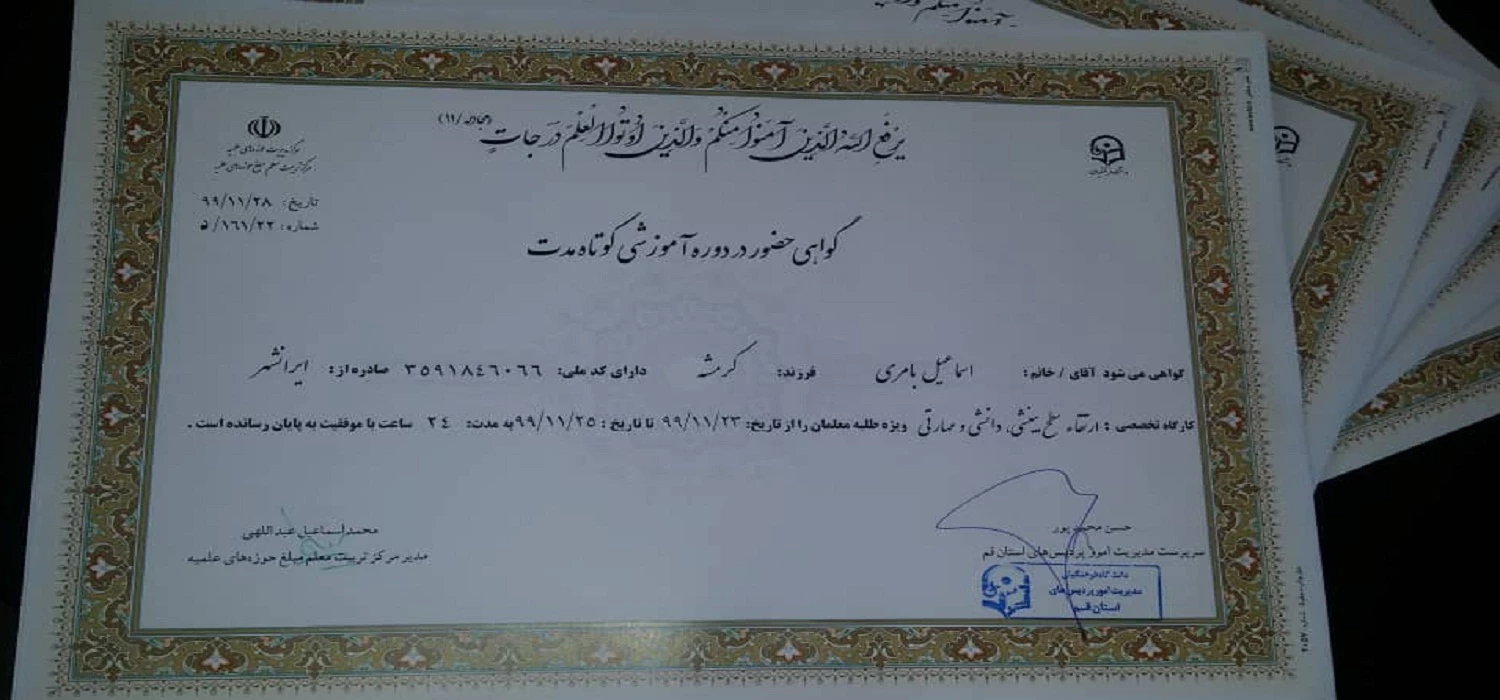 یرفع الله الذین آمنوا منکم والذین اوتوا العلم درجات (مجادله/۱۱)
مرکز مدیریت حوزه‌های علمیه
مرکز تربیت معلم مبلغ حوزه‌های علمیه
تاریخ: ۹۹/۱۱/۲۸
شماره: ۵/۱۶۱/۲۲
گواهی حضور در دوره آموزشی کوتاه مدت
گواهی می شود آقای / خانم: اسماعیل بامری فرزند: کرمشه دارای کد ملی: ۳۵۹۱۸۴۶۰۶۶ صادره از: ایرانشهر
کارگاه تخصصی: ارتقاء سطح بینشی، دانشی و مهارتی ویژه طلبه معلمان را از تاریخ: ۹۹/۱۱/۲۳ تا تاریخ: ۹۹/۱۱/۲۵ به مدت: ۲۴ ساعت با موفقیت به پایان رسانده است.
حسن محمدپور
سرپرست مدیریت امور پردیس‌های استان قم
دانشگاه فرهنگیان
مدیریت امور پردیس های
استان قم
محمداسماعیل عبداللهی
مدیر مرکز تربیت معلم مبلغ حوزه‌های علمیه